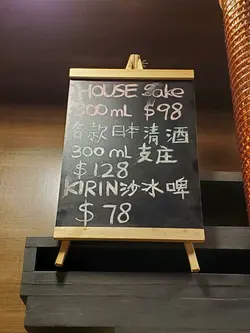 HOUSE Sake
300 mL $98
各款日本清酒
300 mL 支庄
$128
KIRIN沙冰啤
$78